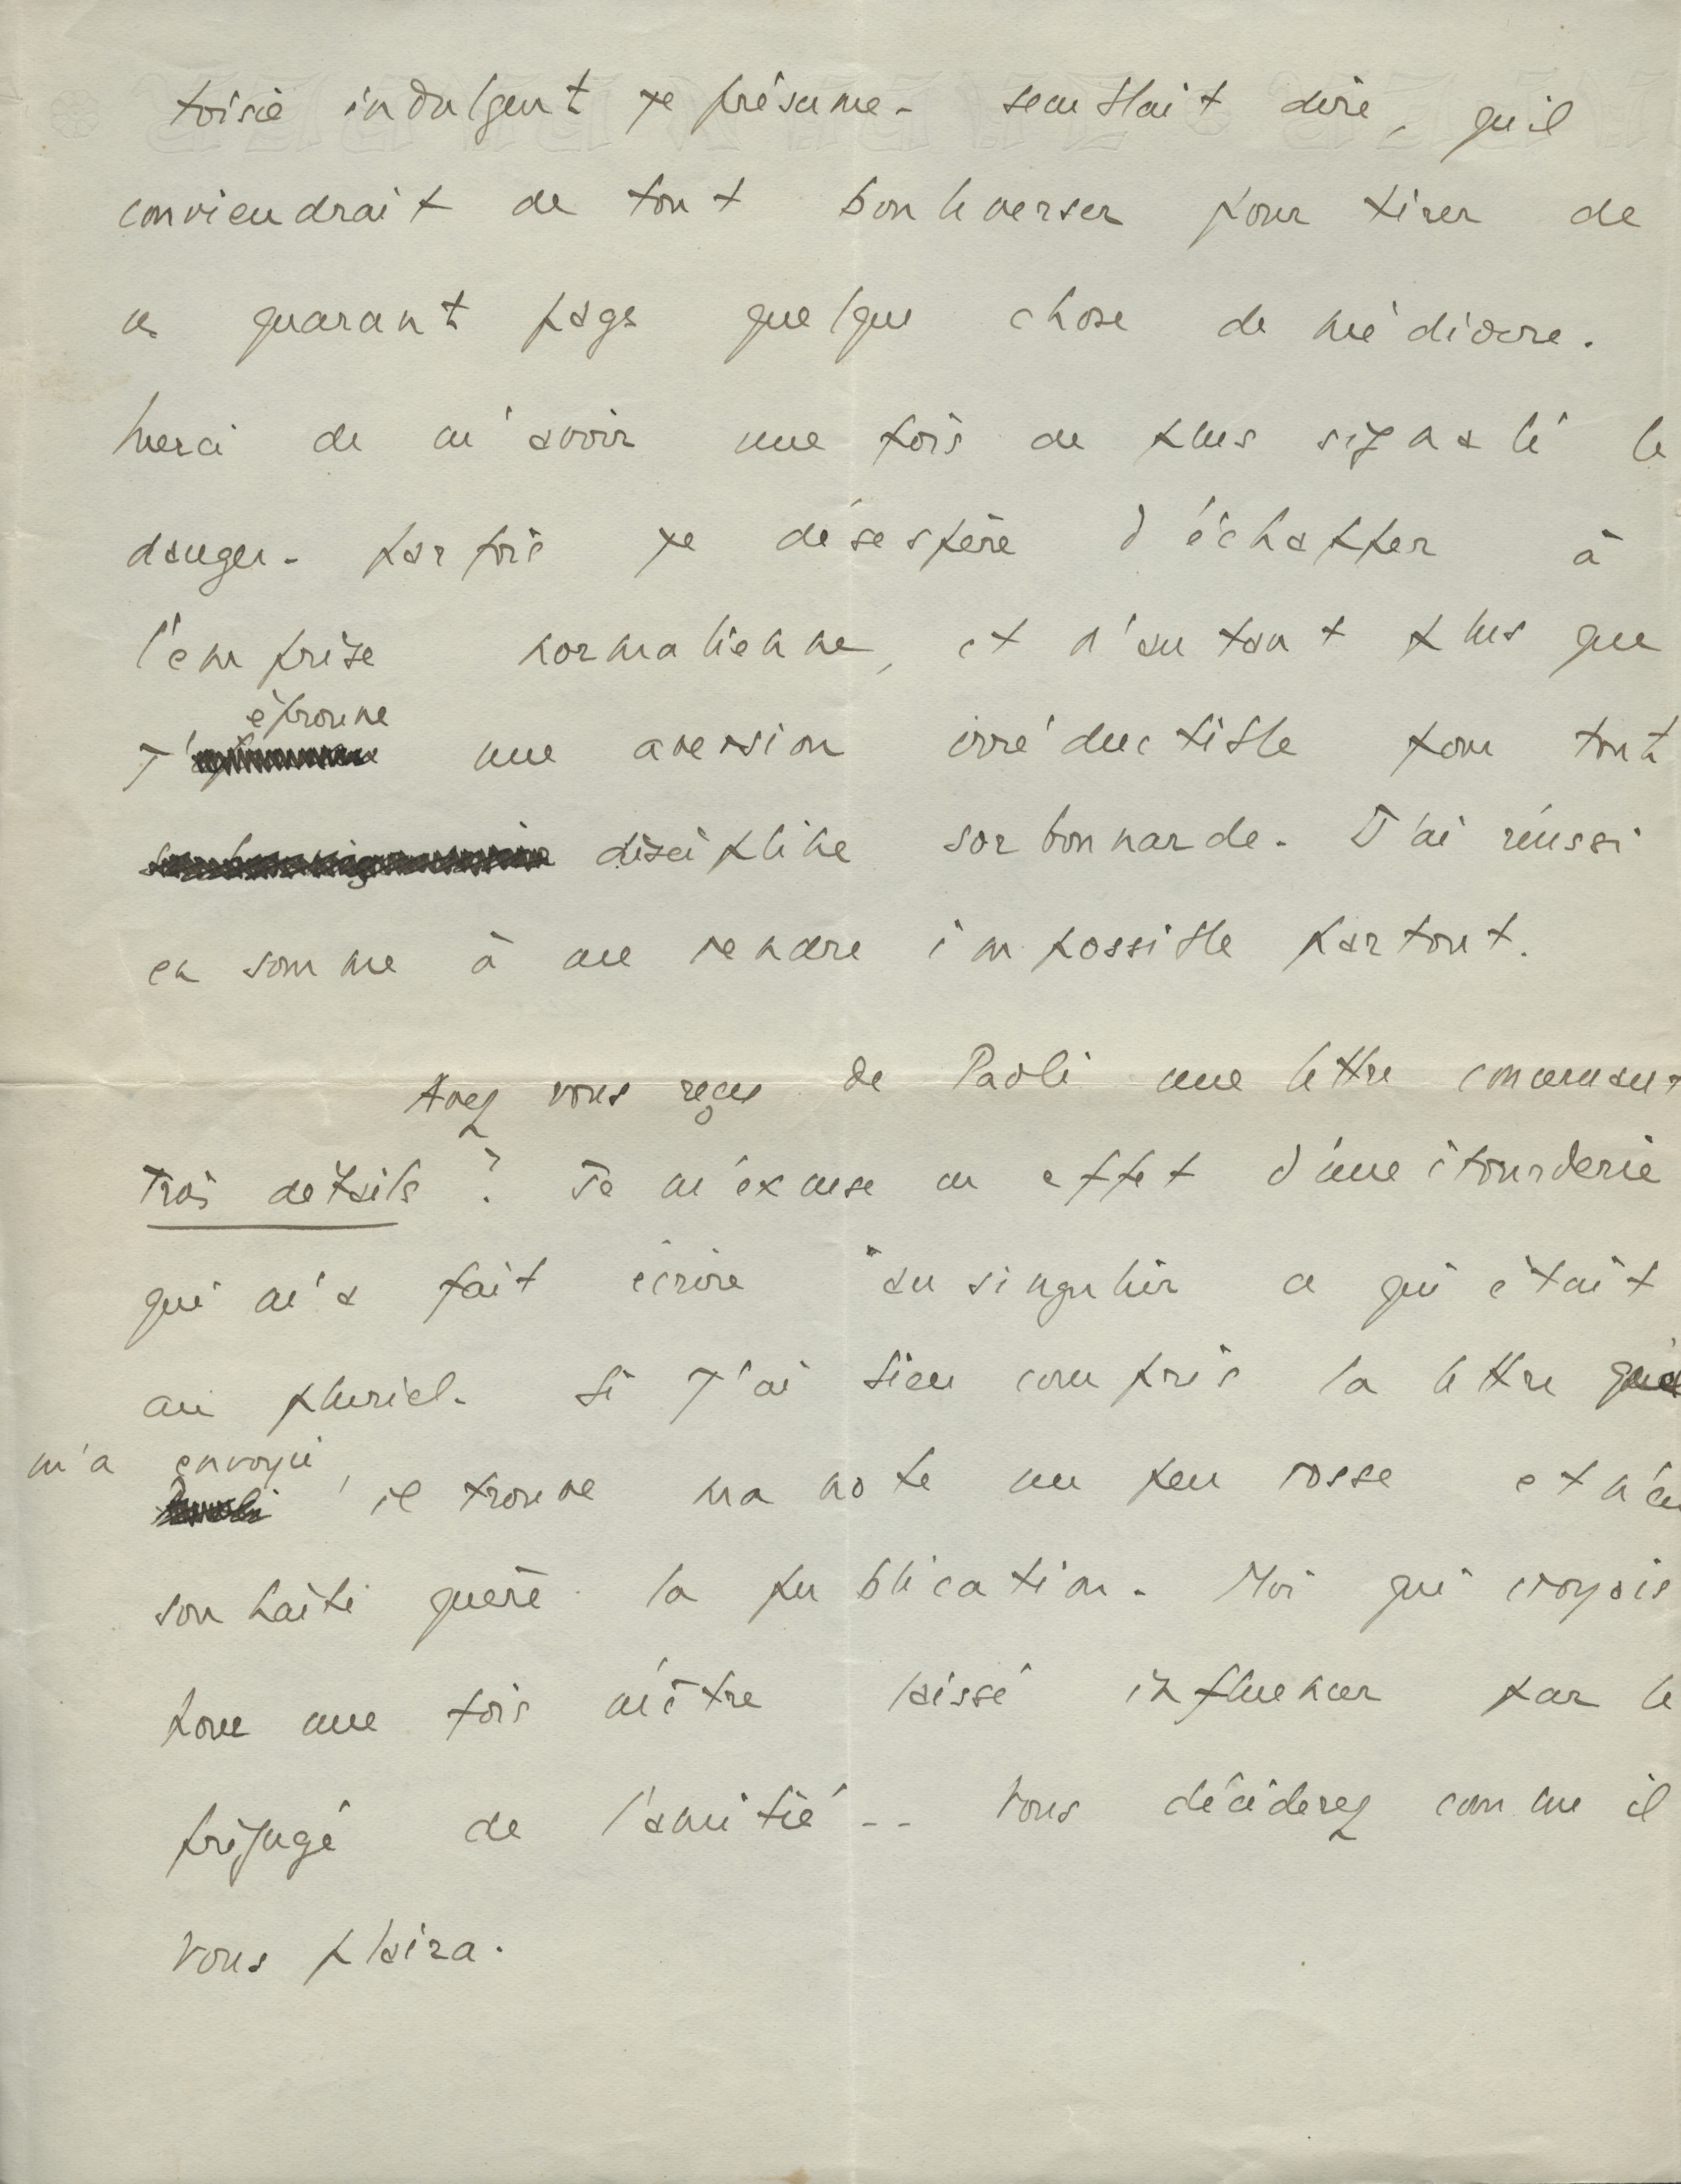 toisie indulgent je présume - semblait dire, qu'il
conviendrait de tout bouleverser pour tirer de
ces quarant pages quelque chose de médiocre.
Merci de m'avoir une fois de plus signalé le
danger - parfois je désespère d'échapper à
l'emprise normalienne, et d'autant plus que
j'éprouve une aversion irréductible pour tout
discipline sorbonnarde. J'ai réussi
en somme à me rendre impossible partout.
Avez vous reçu de Paoli une lettre concernant
Trois détails ? Je m'excuse en effet d'une étourderie
qui m'a fait écrire au singulier ce qui était
au pluriel. Si j'ai bien compris la lettre
m'a envoyé, il trouve ma note un peu rosse et n'en
souhaite guère la publication. Moi qui croyais
pour une fois m'être laissé influencer par le
préjugé de l'amitié -- Vous déciderez comme il
vous plaira.